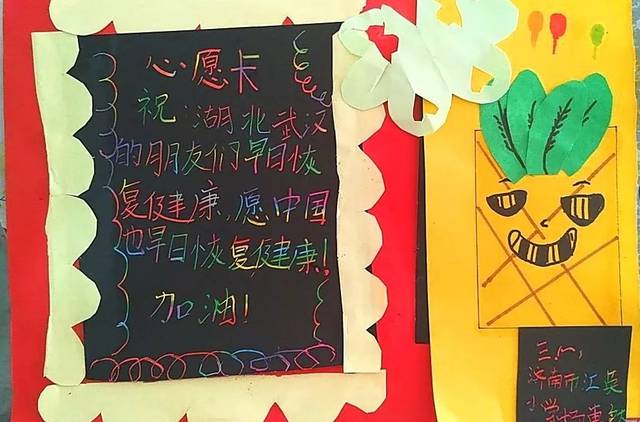 心愿卡
祝湖北武汉
的朋友们早日恢
复健康,愿中国
也早日恢复健康!
加油!
济南市江英
小学